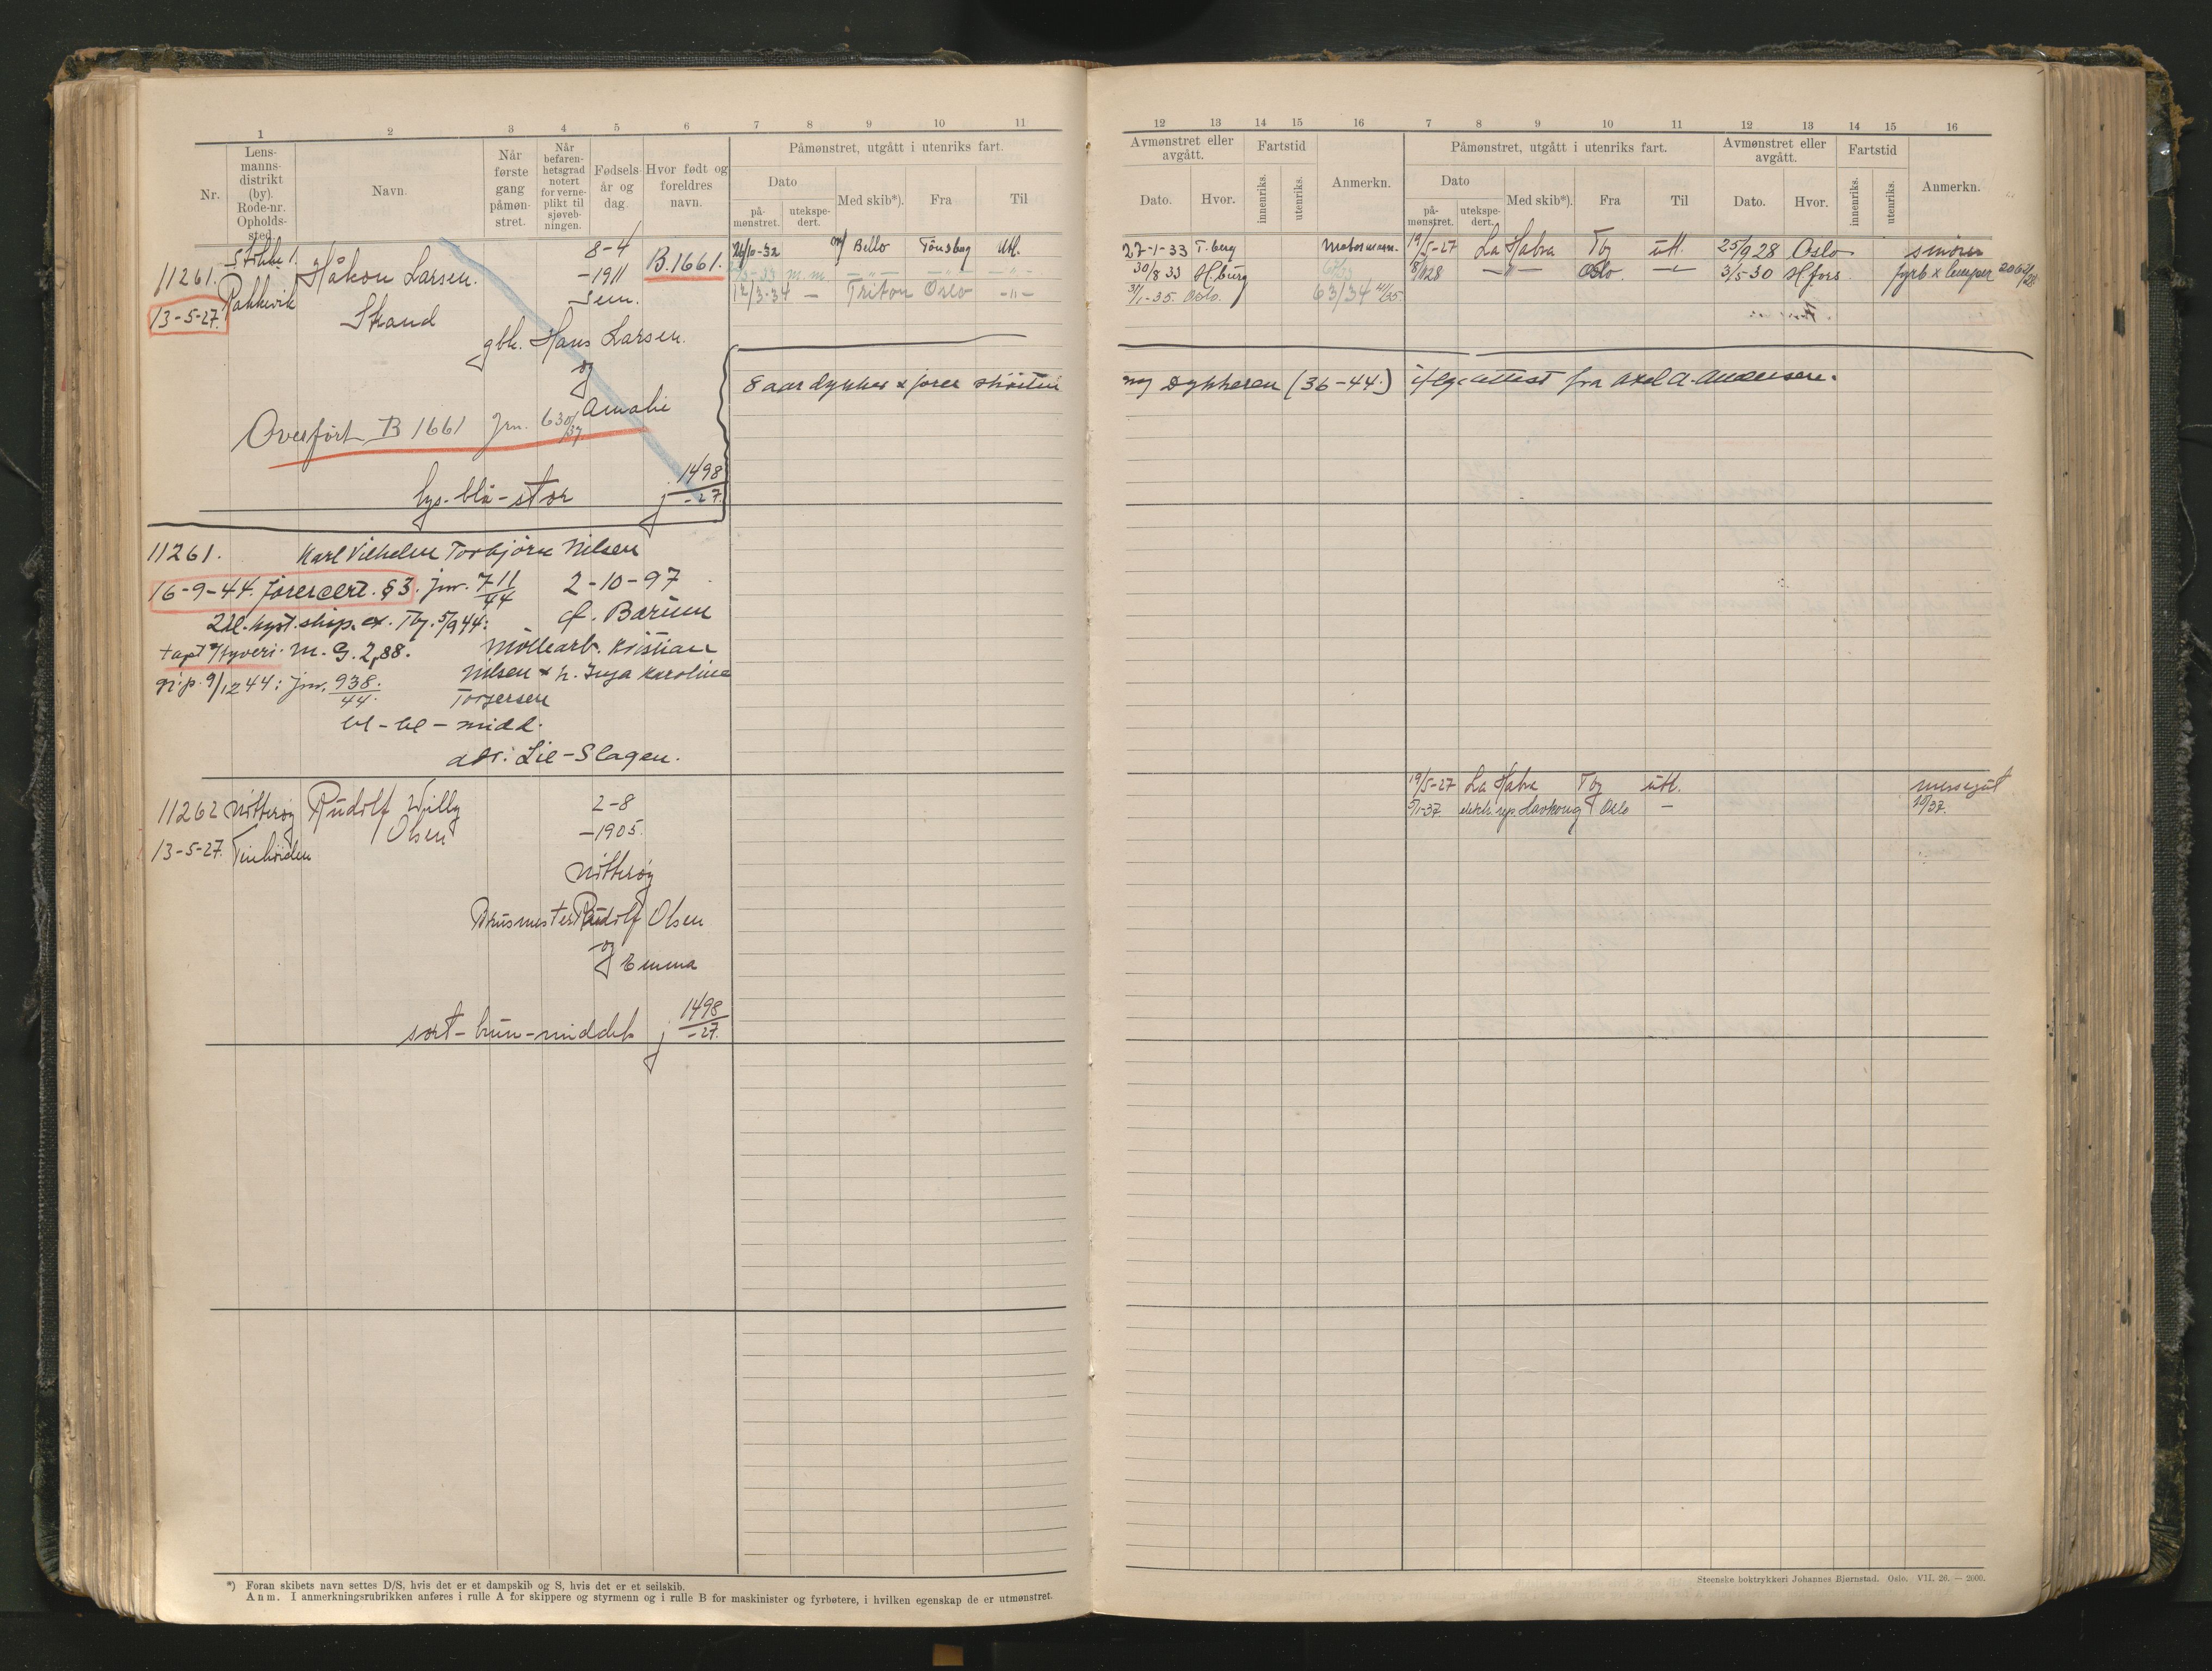 1 2 3 4 5 6 7 8 9 10 11
Nr.
Lens-
manns-
distrikt
(by).
Rode-nr.
Opholds-
sted.
Navn.
Når
første
gang
påmøn-
stret.
Når
befaren-
hetsgrad
notert
for verne-
plikt til
sjøveb-
ningen.
Fødsels-
år og
dag.
Hvor født og
foreldres
navn.
Påmønstret, utgått i utenriks fart.
Dato
på-
mønstret.
utekspe-
dert.
Med skib*).
Fra
Til
Stokke 1.
11261. Håkon Larsen.
Rakkevik
13-5-27.
Skand
8-4
-1911
Sem.
B.1661.
gbr. Hans Larsen.
og
Amalie
Overført B 1661 jrn. 630/37.
lys-blå-stor j 1498/-27.
24/10-32 m/ Bello Tønsberg Utl.
-33 m.m. -"- -"- -"-
12/3-34 - Triton Oslo -"-
8 aar dykker & fører skøiten
11261. Karl Vilhelm Torbjørn Nilsen
16-9-44. førercert. §3. jnr. 711/44 2-10-97
2dl. kyst.skip. ex. Tbg. 5/9 44: f. Bærum
tapt v/tyveri. M. G. 2,88. Møllearb. Kristian
gj.p. 9/12 44: jnr. 938/44. Nilsen & h. Inga Karoline
Torgersen
bl-bl-midd.
adr: Lie-Slagen.
11262 Nøtterøy Rudolf Willy
Olsen
13-5-27.
2-8
-1905.
Nøtterøy
Brusmester Rudolf Olsen
og
Emma
sort-brun-middels j 1498/-27.
*) Foran skibets navn settes D/S, hvis det er et dampskib og S, hvis det er et seilskib.
Anm. I anmerkningsrubrikken anføres i rulle A for skippere og styrmenn og i rulle B for maskinister og fyrbøtere, i hvilken egenskap de er utmønstret.
12 13 14 15 16 7 8 9 10 11 12 13 14 15 16
Avmønstret eller
avgått.
Dato.
Hvor.
Fartstid
innenriks.
utenriks.
Anmerkn.
Påmønstret, utgått i utenriks fart.
Dato
på-
mønstret.
utekspe-
dert.
Med skib*).
Fra
Til
Avmønstret eller
avgått.
Dato.
Hvor.
Fartstid
innenriks.
utenriks.
Anmerkn.
27-1-33 T.berg 19/5-27 La Habra Tbg utl. 25/9 28 Oslo smører
30/8 33 H.burg 8/10 28 -"- Oslo. -"- 3/5-30 H.fors fyrb & lemper 2063/28
31/1-35. Oslo. 63/34
m/ Dykkeren (36-44.) iflg. attest fra Axel A. Andersen.
19/5-27 La Habra Tbg utl. messegut
5/1-37. Oslo -
Steenske boktrykkeri Johannes Bjørnstad. Oslo. VII. 26. — 2000.